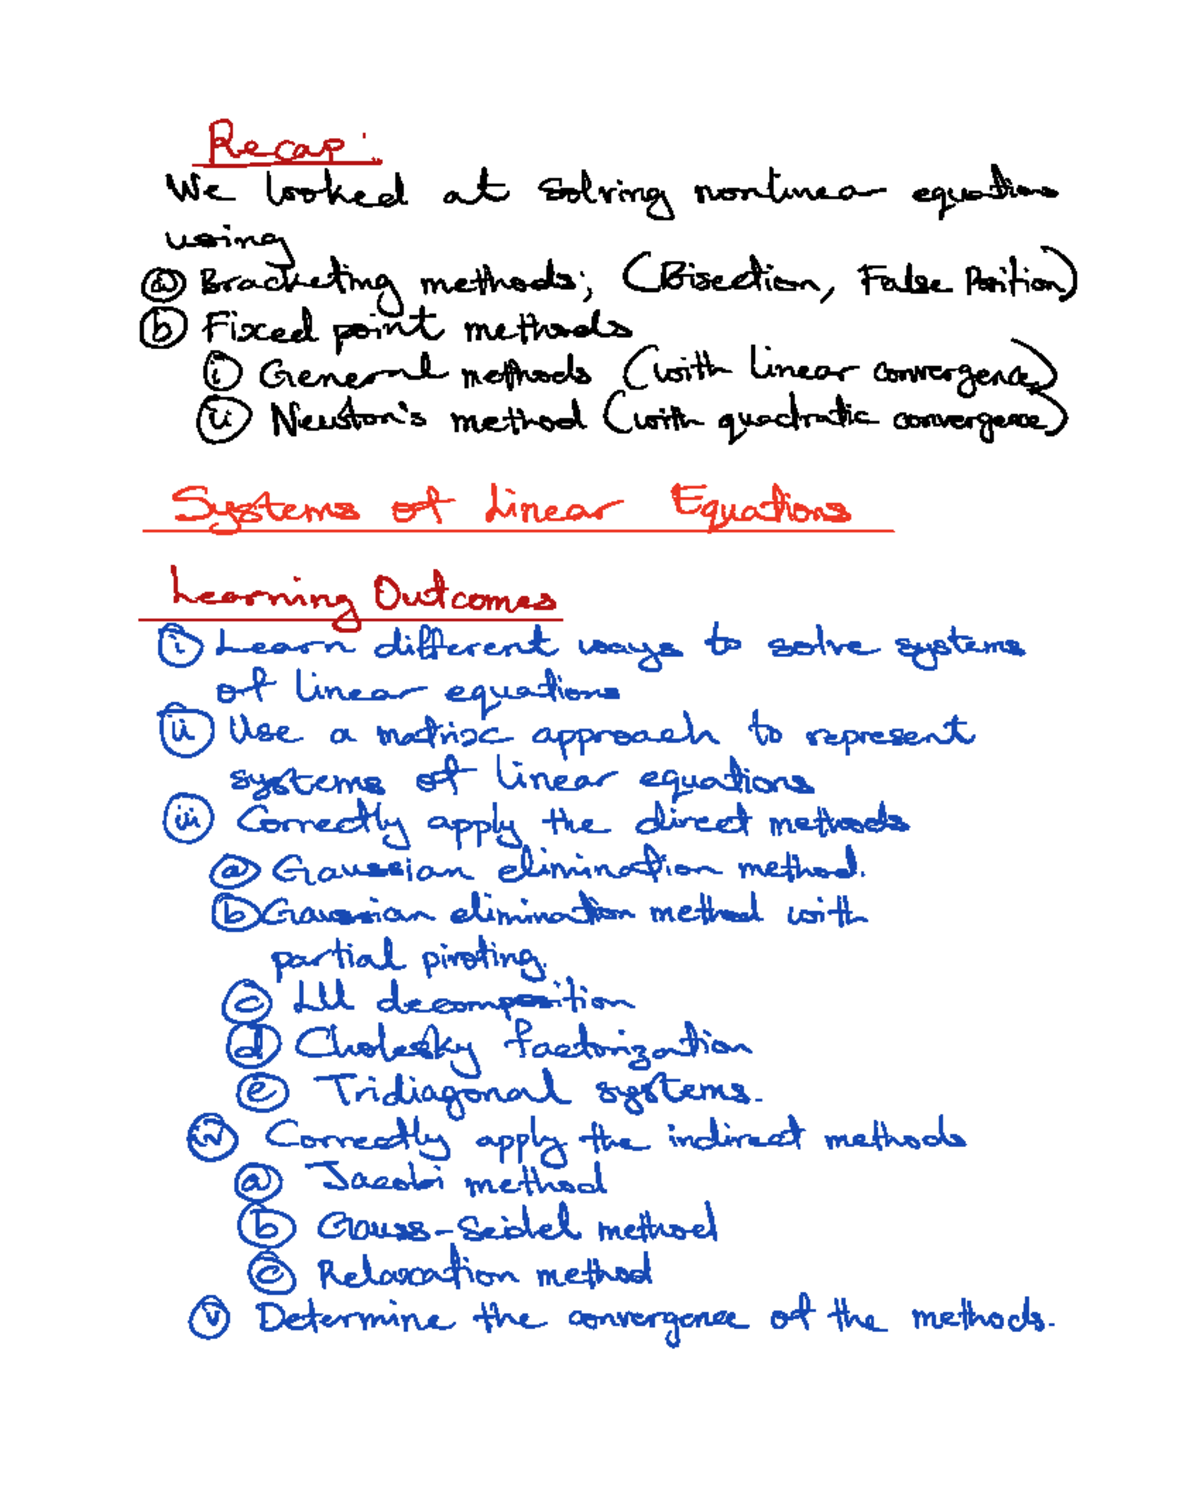 Recap:
We looked at solving nonlinear equations
using
(a) Bracketing methods; (Bisection, False Position)
(b) Fixed point methods
(i) General methods (with linear convergence)
(ii) Newton's method (with quadratic convergence)
Systems of Linear Equations
Learning Outcomes
(i) Learn different ways to solve systems
of linear equations
(ii) Use a matrix approach to represent
systems of linear equations
(iii) Correctly apply the direct methods
(a) Gaussian elimination method.
(b) Gaussian elimination method with
partial pivoting.
(c) LU decomposition
(d) Cholesky factorization
(e) Tridiagonal systems.
(iv) Correctly apply the indirect methods
(a) Jacobi method
(b) Gauss-Seidel method
(c) Relaxation method
(v) Determine the convergence of the methods.